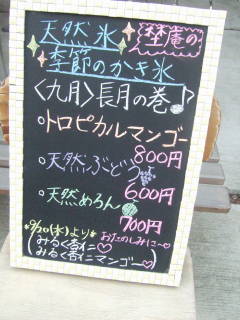 天然氷 埜庵の
季節のかき氷
〈九月〉長月の巻♪
・トロピカルマンゴー
800円
・天然ぶどう
600円
・天然めろん
700円
*9/20(水)より おたのしみに〜♡
(みるく杏仁♡
みるく杏仁マンゴー♡)